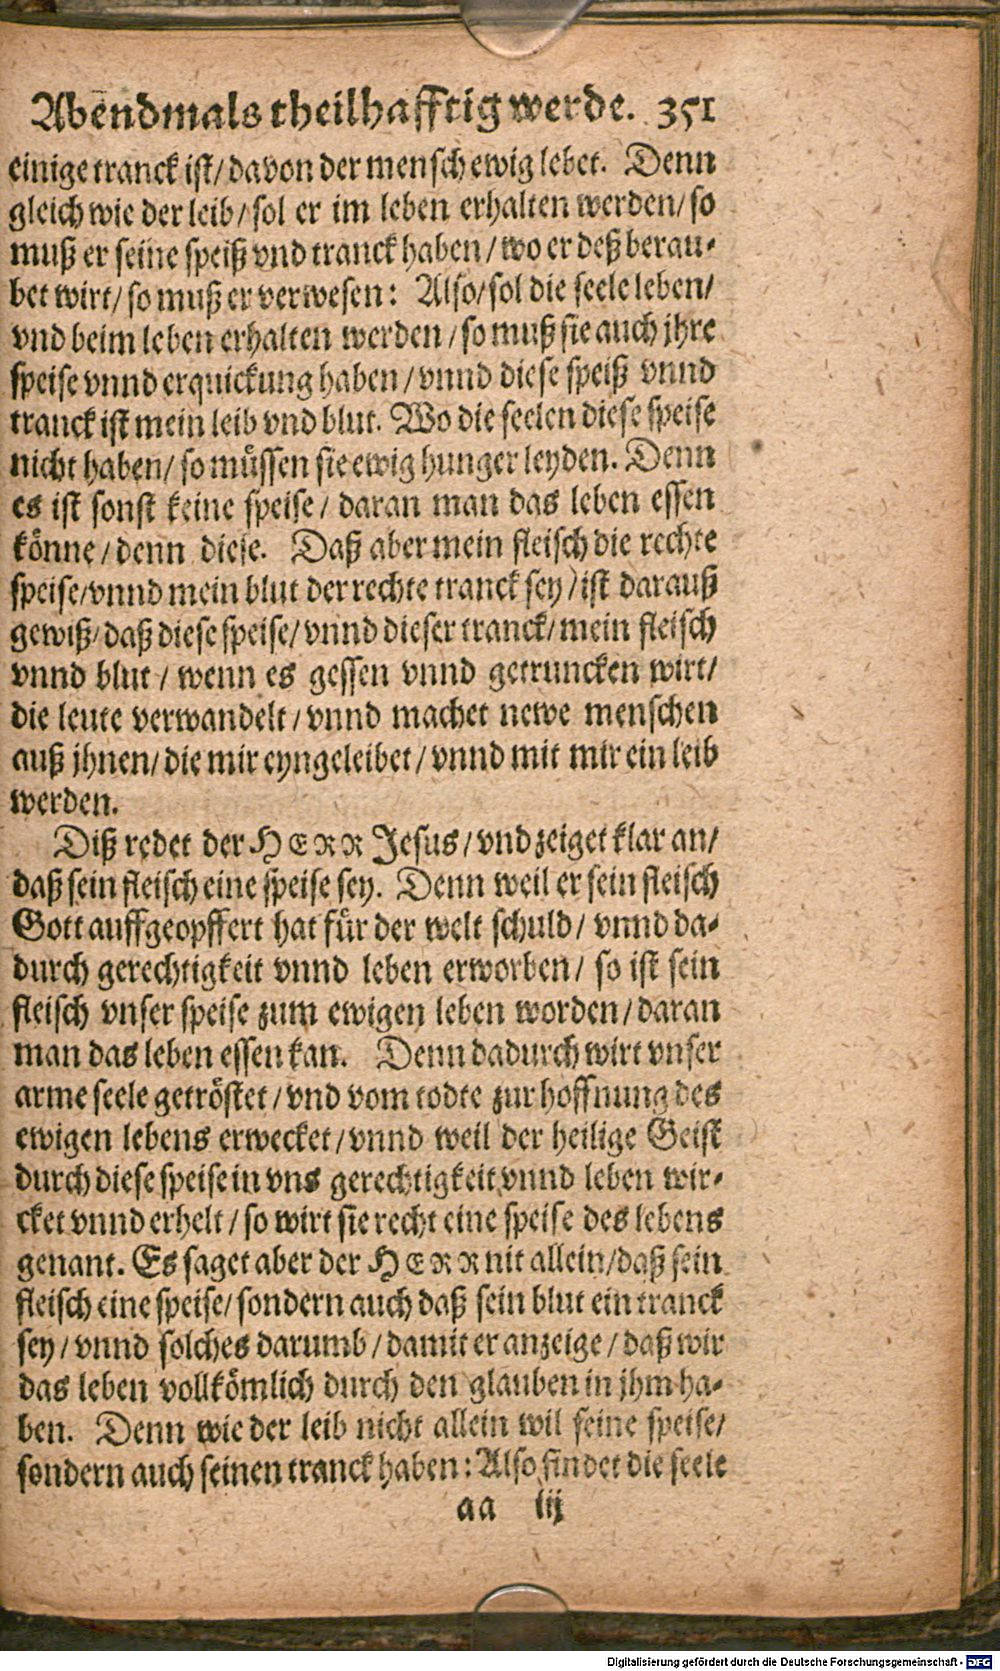 Abendmals theilhafftig werde. 351
einige tranck ist/ davon der mensch ewig lebet. Denn
gleich wie der leib/ sol er im leben erhalten werden/ so
muß er seine speiß vnd tranck haben/ wo er deß berau-
bet wirt/ so muß er verwesen: Also/ sol die seele leben/
vnd beim leben erhalten werden/ so muß sie auch jhre
speise vnnd erquickung haben/ vnnd diese speiß vnnd
tranck ist mein leib vnd blut. Wo die seelen diese speise
nicht haben/ so müssen sie ewig hunger leyden. Denn
es ist sonst keine speise/ daran man das leben essen
könne/ denn diese. Daß aber mein fleisch die rechte
speise/ vnnd mein blut der rechte tranck sey/ ist darauß
gewiß/ daß diese speise/ vnnd dieser tranck/ mein fleisch
vnnd blut/ wenn es gessen vnnd getruncken wirt/
die leute verwandelt/ vnnd machet newe menschen
auß jhnen/ die mir eyngeleibet/ vnnd mit mir ein leib
werden.
Diß redet der HERR Jesus/ vnd zeiget klar an/
daß sein fleisch eine speise sey. Denn weil er sein fleisch
Gott auffgeopffert hat für der welt schuld/ vnnd da-
durch gerechtigkeit vnnd leben erworben/ so ist sein
fleisch vnser speise zum ewigen leben worden/ daran
man das leben essen kan. Denn dadurch wirt vnser
arme seele getröstet/ vnd vom todte zur hoffnung des
ewigen lebens erwecket/ vnnd weil der heilige Geist
durch diese speise in vns gerechtigkeit vnnd leben wir-
cket vnnd erhelt/ so wirt sie recht eine speise des lebens
genant. Es saget aber der HERR nit allein/ daß sein
fleisch eine speise/ sondern auch daß sein blut ein tranck
sey/ vnnd solches darumb/ damit er anzeige/ daß wir
das leben vollkömlich durch den glauben in jhm ha-
ben. Denn wie der leib nicht allein wil seine speise/
sondern auch seinen tranck haben: Also findet die seele
aa iij
Digitalisierung gefördert durch die Deutsche Forschungsgemeinschaft - DFG